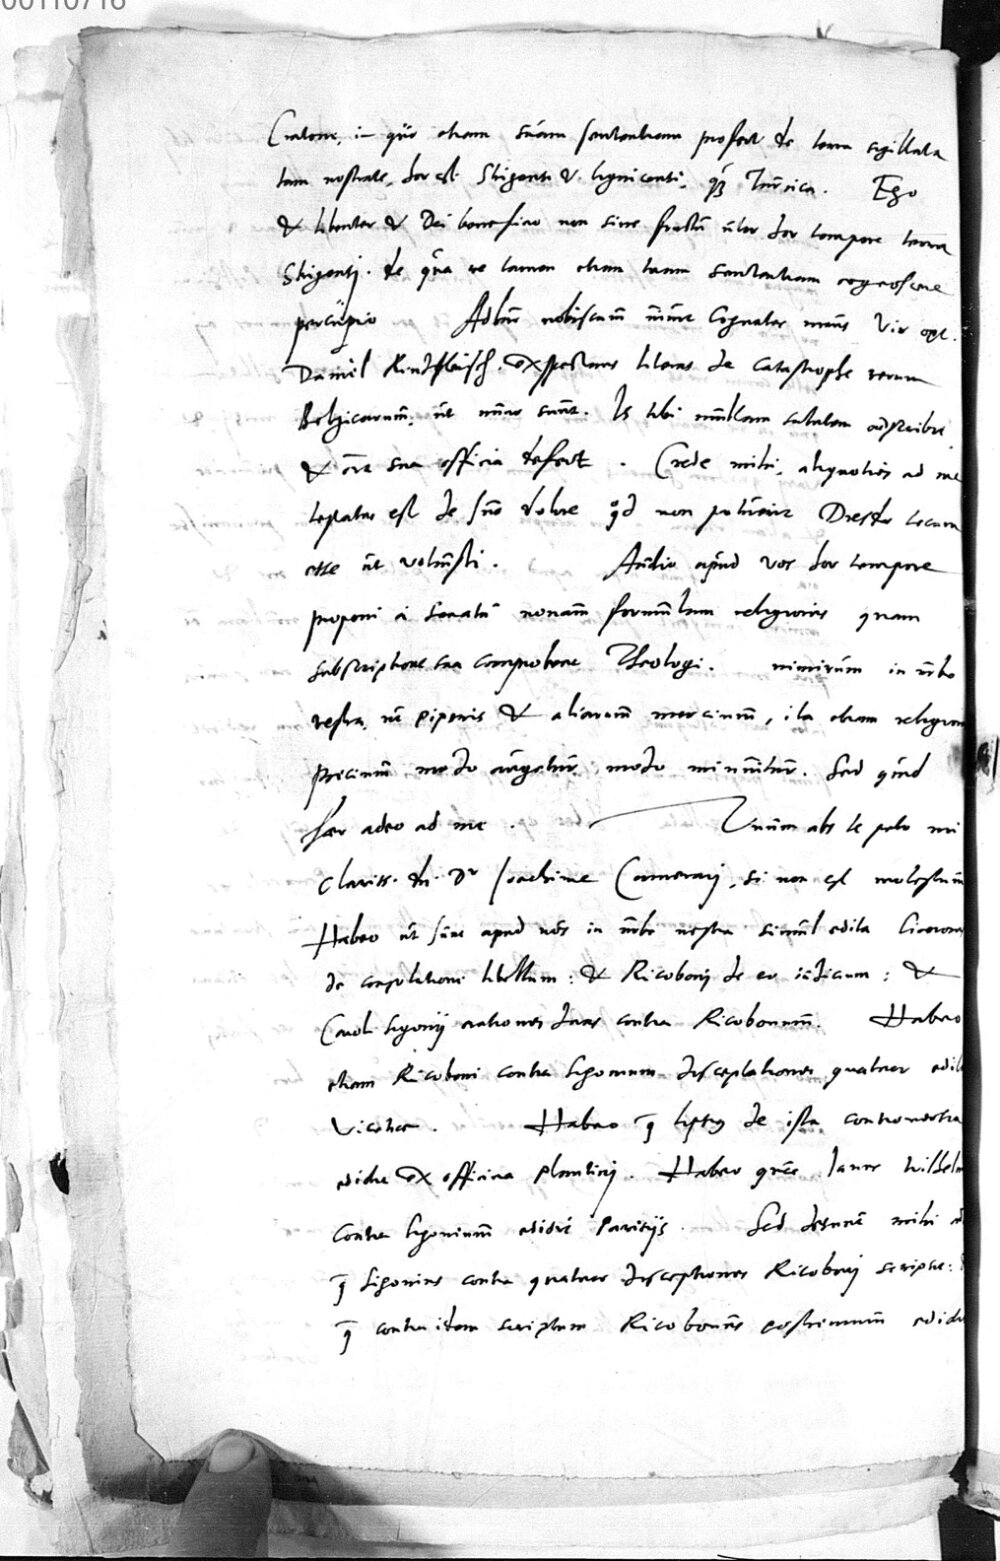 00110716
Cratone, in quo etiam suam sententiam profert de terra sigillata
tam nostrate, hoc est Strigensi & Ligniconsi, quam Turcica. Ego
& libenter & Dei beneficio non sine fructu utor hoc tempore terra
Strigensi. de qua re tamen etiam tuam sententiam cognoscere
percupio Adhuc nobiscum Cognatus meus Vir opt.
Daniel Rindtfleisch. Exspectamus literas de Catastrophe rerum
Belgicarum, ut nunc sunt. Is tibi multam salutem adscribit
& omnia sua officia defert. Crede mihi, aliquoties ad me
est de suo dolore quod non potuerit Dresdae tecum
esse ut voluisti. Audio apud vos hoc tempore
proponi a Senatu novam formulam religionis quam
subscriptione sua comprobent Theologi. nimirum in urbe
vestra, ut piperis & aliarum mercium, ita etiam religion
precium modo augetur, modo minuitur. Sed quid
haec adeo ad me. Unum abs te peto mi
Clariss. dn. Dr Joachime Camerarj, si non est molestum
Habeo ut sunt apud nos in urbe nostra simul edita Ciceronis
de consolatione libellum: & Ricobonj de eo iudicium: &
Caroli Sigonij orationes duas contra Ricobonum. Habeo
etiam Ricoboni contra Sigonium disceptationes quatuor edit
Habeo quae Lipsius de ista controversia
edidit Ex officina Plantinj. Habeo quae Janus Wilhelm
contra Sigonium edidit Parisijs. Sed desunt mihi
quae Sigonius contra quatuor disceptationes Ricobonj scripsit:
quae contra idem scriptum Ricobonus postremum edidit